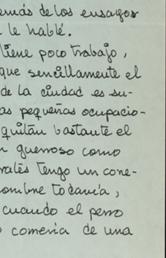 emás de los ensayos
le hablé.
tiene poco trabajo,
que sencillamente el
de la ciudad es su-
as pequeñas ocupacio-
quitan bastante el
guerroso como
ralés tengo un cone-
ombre todavía,
cuando el perro
comería de una